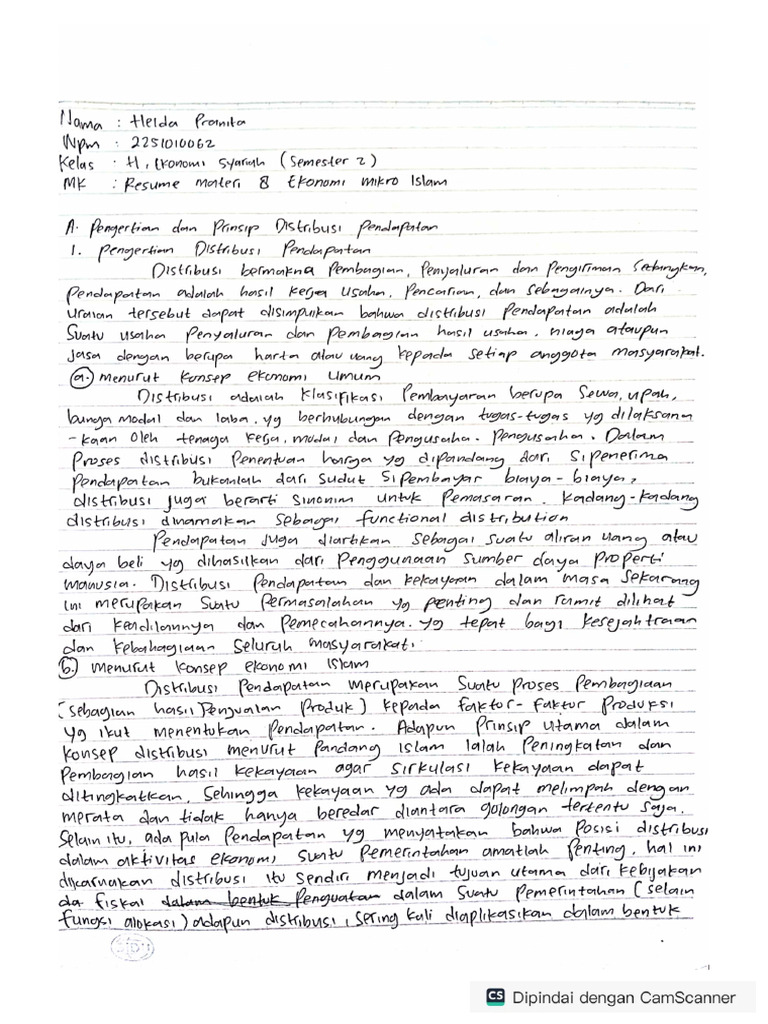 Nama : Helda Pramita
Npm : 2251010062
Kelas : H, Ekonomi Syariah (Semester 2)
MK : Resume materi 8 Ekonomi mikro Islam
A. Pengertian dan Prinsip Distribusi Pendapatan
1. Pengertian Distribusi Pendapatan
Distribusi bermakna Pembagian, Penyaluran dan Pengiriman Sedangkan,
Pendapatan adalah hasil kerja usaha, Pencarian, dan sebagainya. Dari
uraian tersebut dapat disimpulkan bahwa distribusi Pendapatan adalah
Suatu usaha Penyaluran dan Pembagian hasil usaha, niaga ataupun
jasa dengan berupa harta atau uang kepada setiap anggota masyarakat.
a. menurut Konsep ekonomi Umum
Distribusi adalah Klasifikasi Pembayaran berupa Sewa, upah,
bunga modal dan laba, yg berhubungan dengan tugas-tugas yg dilaksana
-kaan oleh tenaga kerja, modal dan Pengusaha. Pengusaha. Dalam
Proses distribusi Penentuan harga yg dipandang dari Sipenerima
Pendapatan bukanlah dari sudut Sipembayar biaya-biaya,
distribusi juga berarti sinonim untuk Pemasaran. Kadang-kadang
distribusi dinamakan sebagai functional distribution
Pendapatan Juga diartikan Sebagai suatu aliran uang atau
daya beli yg dihasilkan dari Penggunaan sumber daya properti
manusia. Distribusi Pendapatan dan kekayaan dalam masa Sekarang
ini merupakan Suatu Permasalahan yg penting dan rumit dilihat
dari keadilannya dan Pemecahannya. yg tepat bagi kesejahtraan
dan Kebahagiaan Seluruh masyarakat.
b. menurut Konsep ekonomi Islam
Distribusi Pendapatan merupakan Suatu proses Pembagiaan
(sebagian hasil Penjualan Produk) kepada faktor-faktor produksi
yg ikut menentukan Pendapatan. Adapun Prinsip utama dalam
konsep distribusi menurut Pandang Islam Ialah Peningkatan dan
Pembagian hasil kekayaan agar sirkulasi kekayaan dapat
ditingkatkan, Sehingga kekayaan yg ada dapat melimpah dengan
merata dan tidak hanya beredar diantara golongan tertentu saja.
Selain itu, ada pula Pendapatan yg menyatakan bahwa Posisi distribusi
dalam aktivitas ekonomi suatu Pemerintahan amatlah Penting, hal ini
dikarnakan distribusi itu sendiri menjadi tujuan utama dari kebijakan
da fiskal dalam bentuk Penguatan dalam Suatu pemerintahan (selain
fungsi alokasi) adapun distribusi, sering kali diaplikasikan dalam bentuk
CS Dipindai dengan CamScanner